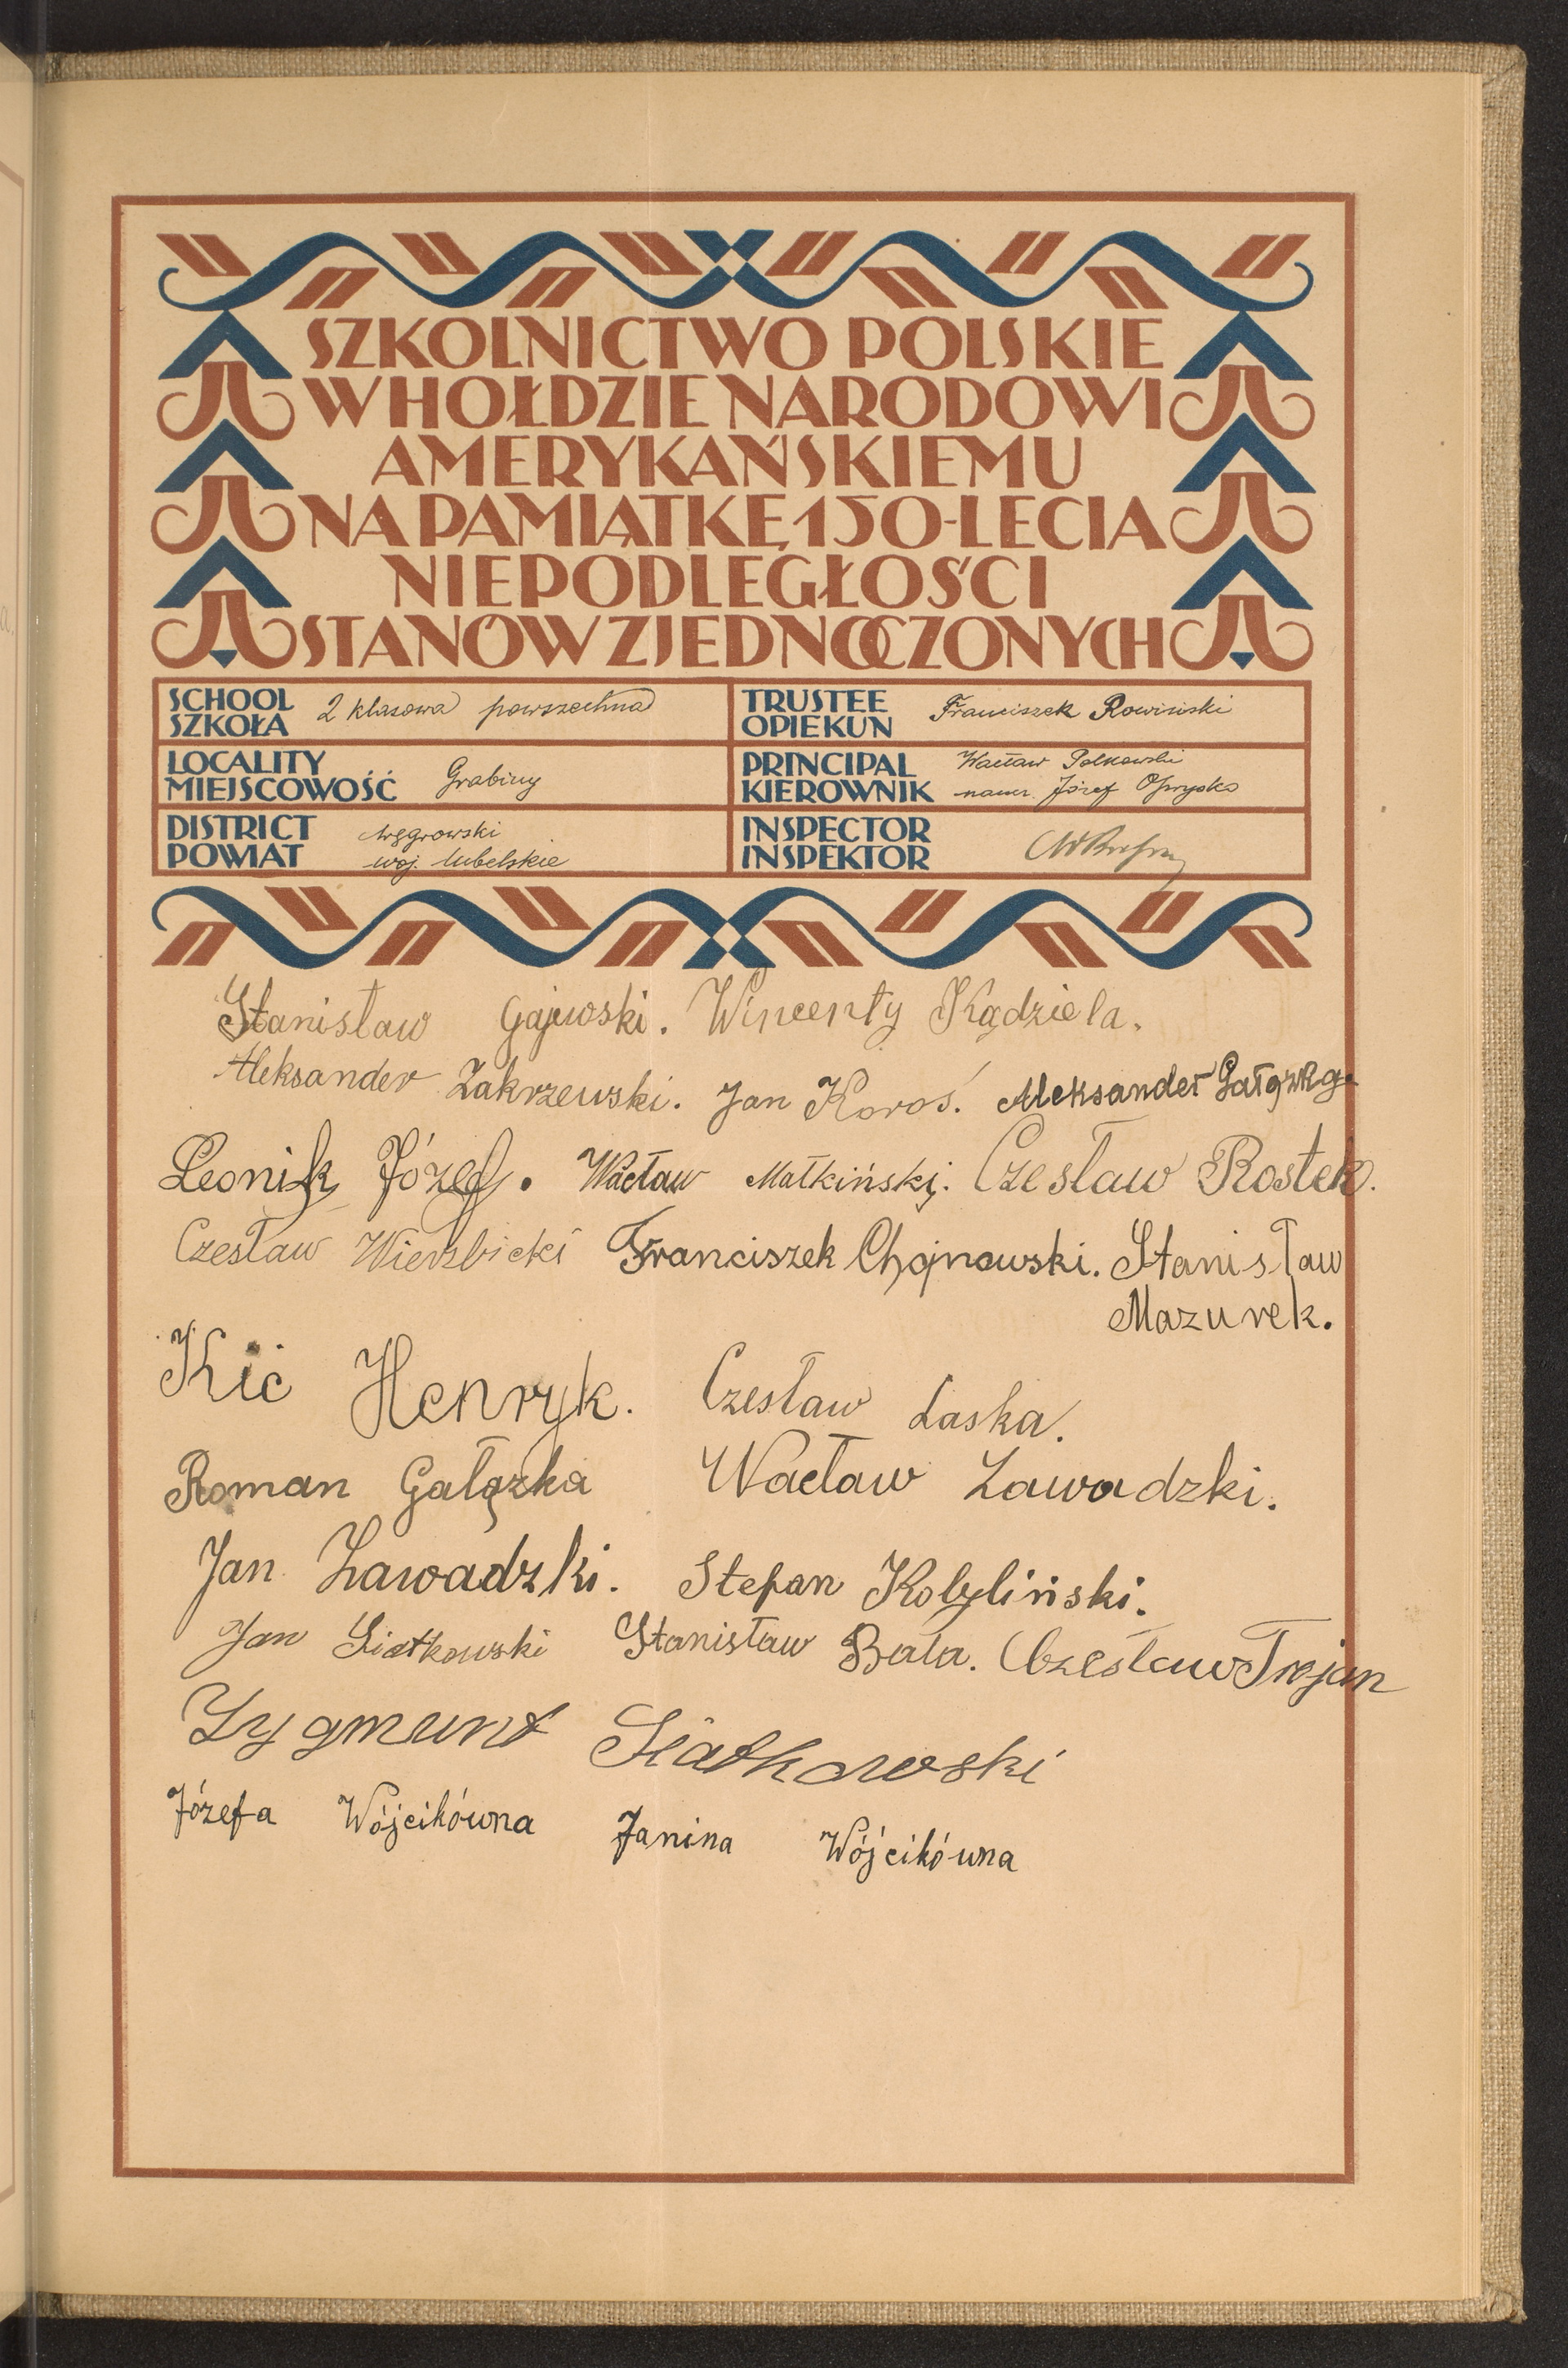 SZKOLNICTWO POLSKIE
W HOŁDZIE NARODOWI
AMERYKAŃSKIEMU
NA PAMIĄTKĘ 150-LECIA
NIEPODLEGŁOŚCI
STANÓW ZJEDNOCZONYCH
SCHOOL
SZKOŁA 2 klasowa powszechna
TRUSTEE
OPIEKUN Franciszek Rowiński
LOCALITY
MIEJSCOWOŚĆ Grabiny
PRINCIPAL Wacław Polkowski
KIEROWNIK naucz. Józef Oprysko
DISTRICT węgrowski
POWIAT woj. lubelskie
INSPECTOR
INSPEKTOR
Stanisław Gajewski. Wincenty Kądziela.
Aleksander Zakrzewski. Jan Koroś. Aleksander
Leonik Józef. Wacław Małkiński. Czesław Rostek.
Czesław Wierzbicki Franciszek Chojnowski. Stanisław
Mazurek.
Kić Henryk. Czesław Laska.
Roman Gałązka Wacław Zawadzki.
Jan Zawadzki. Stefan Kobyliński.
Jan Siatkowski Stanisław Bala. Czesław Trojan
Zygmunt Siatkowski
Józefa Wójcikówna Janina Wójcikówna